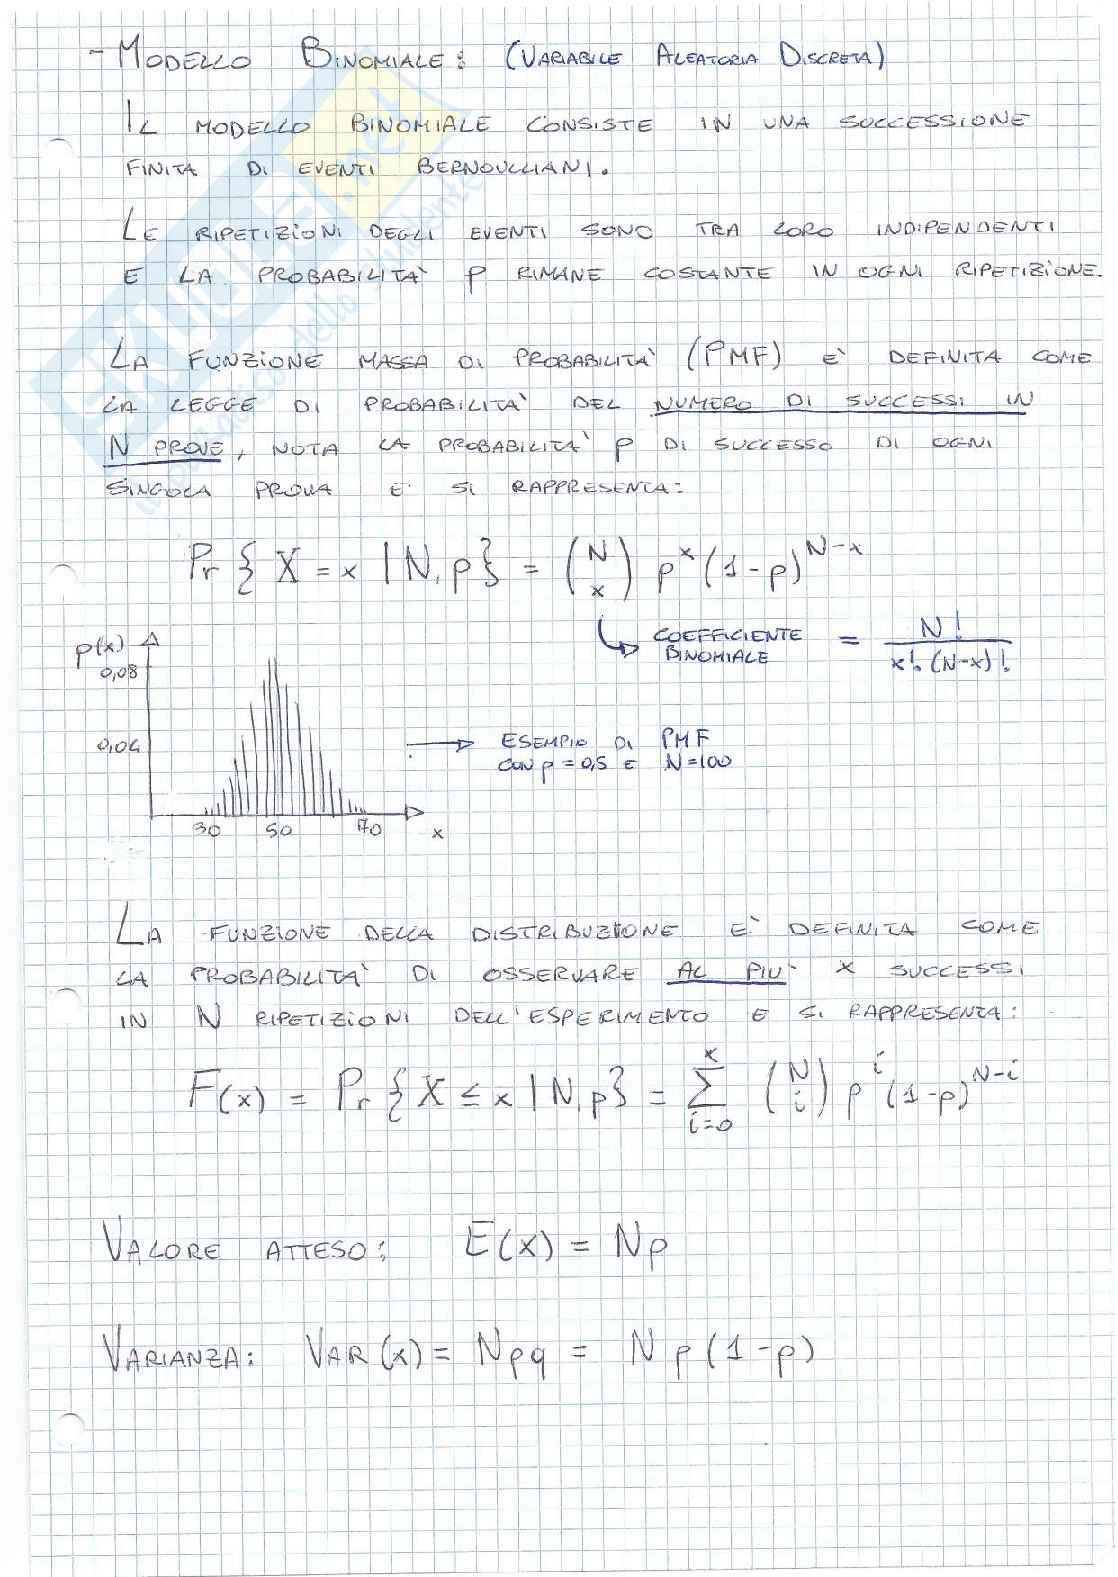 - MODELLO BINOMIALE: (VARIABILE ALEATORIA DISCRETA)
IL MODELLO BINOMIALE CONSISTE IN UNA SUCCESSIONE
FINITA DI EVENTI BERNOULLIANI.
LE RIPETIZIONI DEGLI EVENTI SONO TRA LORO INDIPENDENTI
E LA PROBABILITA' p RIMANE COSTANTE IN OGNI RIPETIZIONE.
LA FUNZIONE MASSA DI PROBABILITA' (PMF) E' DEFINITA COME
LA LEGGE DI PROBABILITA' DEL NUMERO DI SUCCESSI IN
N PROVE, NOTA LA PROBABILITA' p DI SUCCESSO DI OGNI
SINGOLA PROVA E SI RAPPRESENTA:
Pr { X = x | N, p } = (N x) p^x (1-p)^(N-x)
COEFFICIENTE BINOMIALE = N! / x! (N-x)!
p(x)
0,08
0,04
30 50 70 x
ESEMPIO DI PMF
CON p = 0,5 E N = 100
LA FUNZIONE DELLA DISTRIBUZIONE E' DEFINITA COME
LA PROBABILITA' DI OSSERVARE AL PIU' x SUCCESSI
IN N RIPETIZIONI DELL'ESPERIMENTO E SI RAPPRESENTA:
F(x) = Pr { X ≤ x | N, p } = Σ_{i=0}^{x} (N i) p^i (1-p)^(N-i)
VALORE ATTESO: E(x) = Np
VARIANZA: VAR(x) = Npq = Np(1-p)